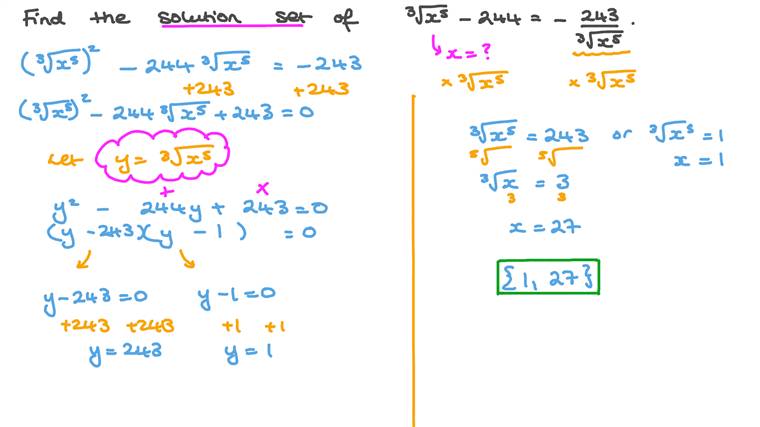 Find the solution set of ∛x⁵ - 244 = - 243/∛x⁵ .
x = ?
× ∛x⁵ × ∛x⁵
(∛x⁵)² - 244 ∛x⁵ = - 243
+243 +243
(∛x⁵)² - 244 ∛x⁵ + 243 = 0
Let y = ∛x⁵
+ ×
y² - 244y + 243 = 0
(y - 243)(y - 1) = 0
y - 243 = 0 y - 1 = 0
+243 +243 +1 +1
y = 243 y = 1
∛x⁵ = 243 or ∛x⁵ = 1
⁵√ ⁵√ x = 1
∛x = 3
3 3
x = 27
{1, 27}